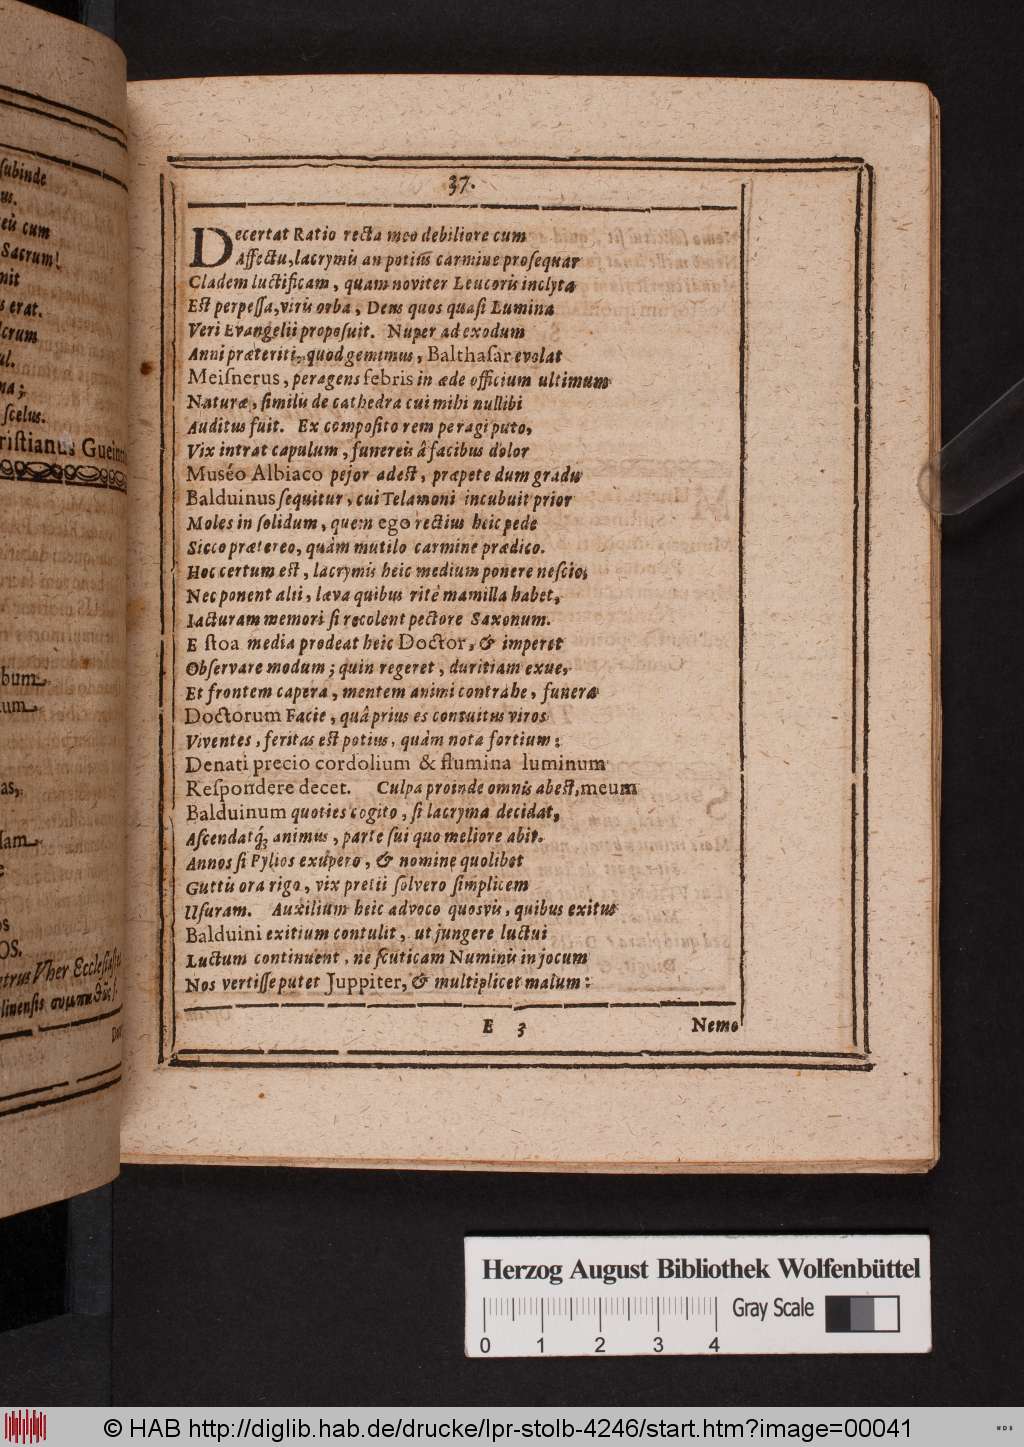 ſubinde
us.
eû cum
Sacrum!
nit
s erat.
lcrum
ul.
na;
ſcelus.
riſtianus Gueint
bum
tum
as,
ſam
e
os
OS.
etrus Vher Eccleſi
linenſis
37.
Decertat Ratio recta meo debiliore cum
Affectu, lacrymis an potiùs carmine proſequar
Cladem luctificam, quam noviter Leucoris inclyta
Eſt perpeſſa, viris orba, Deus quos quaſi Lumina
Veri Evangelii propoſuit. Nuper ad exodum
Anni præteriti, quod gemimus, Balthaſar evolat
Meiſnerus, peragens febris in æde officium ultimum
Naturæ, ſimilis de cathedra cui mihi nullibi
Auditus fuit. Ex compoſito rem peragi puto,
Vix intrat capulum, funereis â facibus dolor
Muséo Albiaco pejor adeſt, præpete dum gradu
Balduinus ſequitur, cui Telamoni incubuit prior
Moles in ſolidum, quem ego rectius heic pede
Sicco prætereo, quàm mutilo carmine prædico.
Hoc certum eſt, lacrymis heic medium ponere neſcio,
Nec ponent alii, læva quibus ritè mamilla habet,
Iacturam memori ſi recolent pectore Saxonum.
E ſtoa media prodeat heic Doctor, & imperet
Obſervare modum; quin regeret, duritiam exue,
Et frontem capera, mentem animi contrahe, funera
Doctorum Facie, quâ prius es contuitus viros
Viventes, feritas eſt potius, quàm nota fortium:
Denati precio cordolium & flumina luminum
Reſpondere decet. Culpa proinde omnis abeſt, meum
Balduinum quoties cogito, ſi lacryma decidat,
Aſcendatq́; animus, parte ſui quo meliore abit.
Annos ſi Pylios exupero, & nomine quolibet
Guttis ora rigo, vix pretii ſolvero ſimplicem
Uſuram. Auxilium heic advoco quosvis, quibus exitus
Balduini exitium contulit, ut jungere luctui
Luctum continuent, ne ſcuticam Numinis in jocum
Nos vertiſſe putet Juppiter, & multiplicet malum:
E 3 Nemo
Herzog August Bibliothek Wolfenbüttel
Gray Scale
0 1 2 3 4
© HAB http://diglib.hab.de/drucke/lpr-stolb-4246/start.htm?image=00041